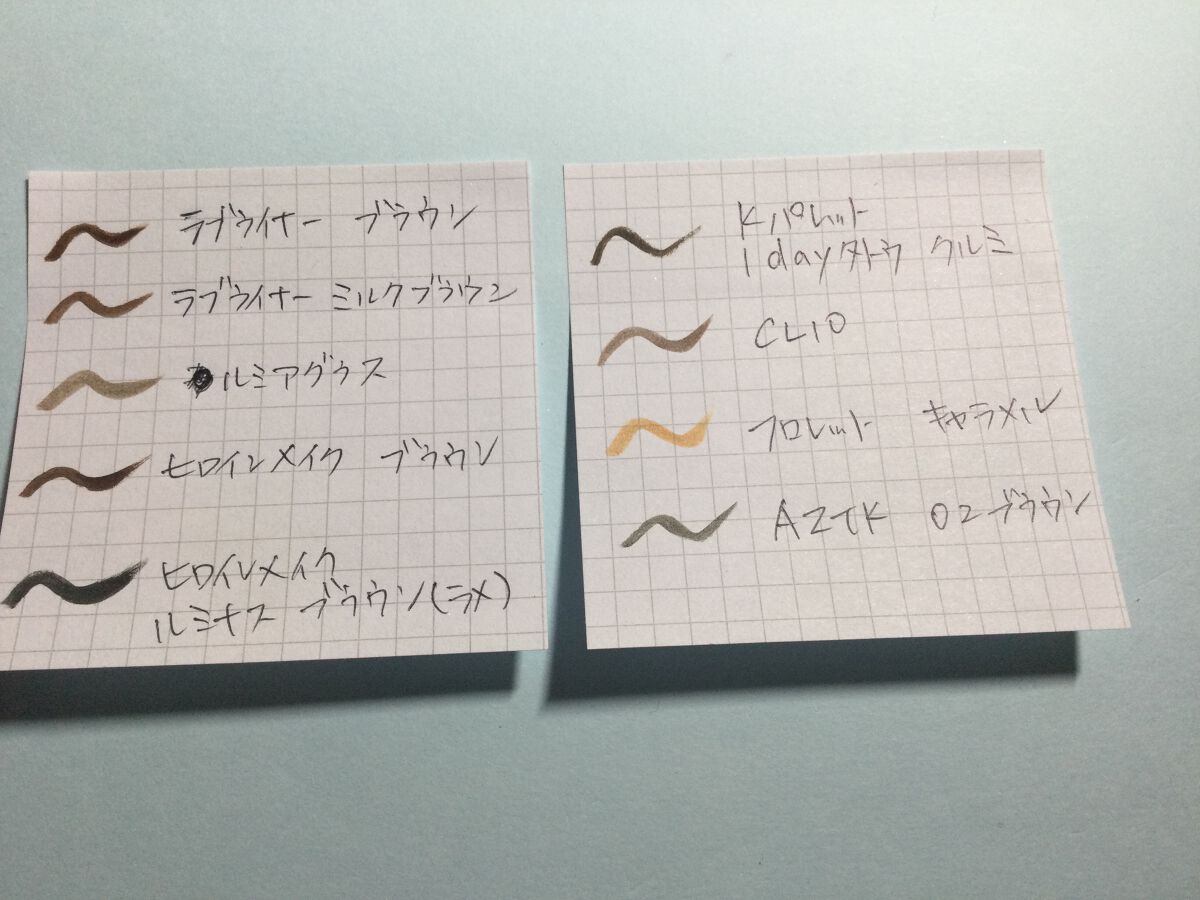 ラブライナー ブラウン
ラブライナー ミルクブラウン
ルミアグラス
ヒロインメイク ブラウン
ヒロインメイク
ルミナス ブラウン(ラメ)
Kパレット
1dayタトゥ クルミ
CLIO
フロレット キャラメル
AZTK 02ブラウン